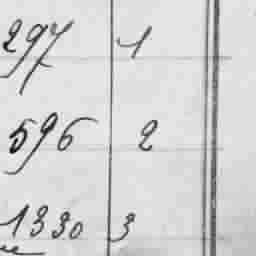 297 1
596 2
1330 3